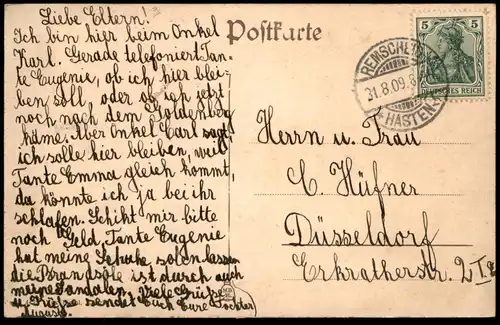 Liebe Eltern!
Ich bin hier beim Onkel
Karl. Gerade telefoniert Tan-
te Eugenie, ob ich hier blei-
ben soll oder ob ich jetzt
noch nach dem
käme. Aber Onkel Carl sagt
ich solle hier bleiben, weil
Tante Emma gleich kommt,
da könnte ich ja bei ihr
schlafen. Schikt mir bitte
noch Geld, Tante Eugenie
hat meine Schuhe solen lassen
die Brandsole ist durch auch
meine Sandalen. Viele Grüße
u. Küsse sendet Euch Eure Tochter
Auguste.
Postkarte
REMSCHEID
31.8.09.8
HASTEN
5 5
DEUTSCHES REICH
Herrn u. Frau
C. Hüfner
Düsseldorf
Erkratherstr. 2 I